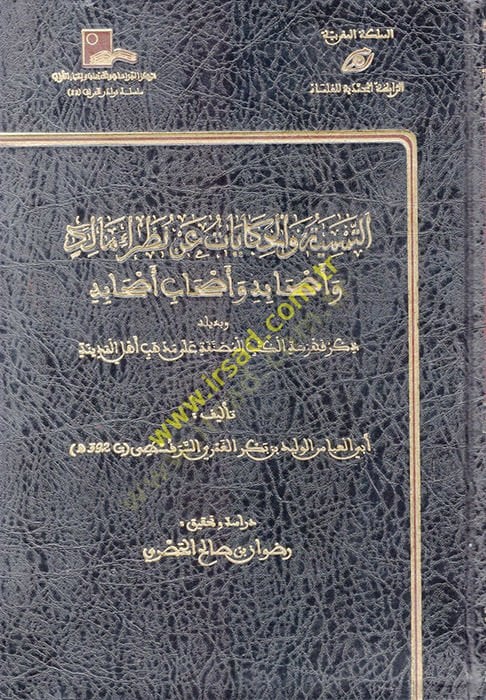 المملكة المغربية
الرابطة المحمدية للعلماء
سلسلة نوادر التراث
التسمية والحكايات عن نظراء مالك
وأصحابه وأصحاب أصحابه
وبذيله
ذكر فهرسة الكتب المصنفة على مذهب أهل المدينة
تأليف:
أبي العباس الوليد بن بكر الغمري السرقسطي (ت 392 هـ)
دراسة وتحقيق:
رضوان بن صالح الحصري
www.irsad.com.tr